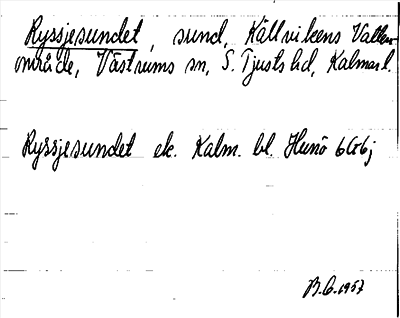 Ryssjesundet, sund, Källvikens Vatten-
område, Västrums sn, S. Tjusts hd, Kalmar l.
Ryssjesundet ek. Kalm. bl. Hunö 6G6j
B.G. 1957